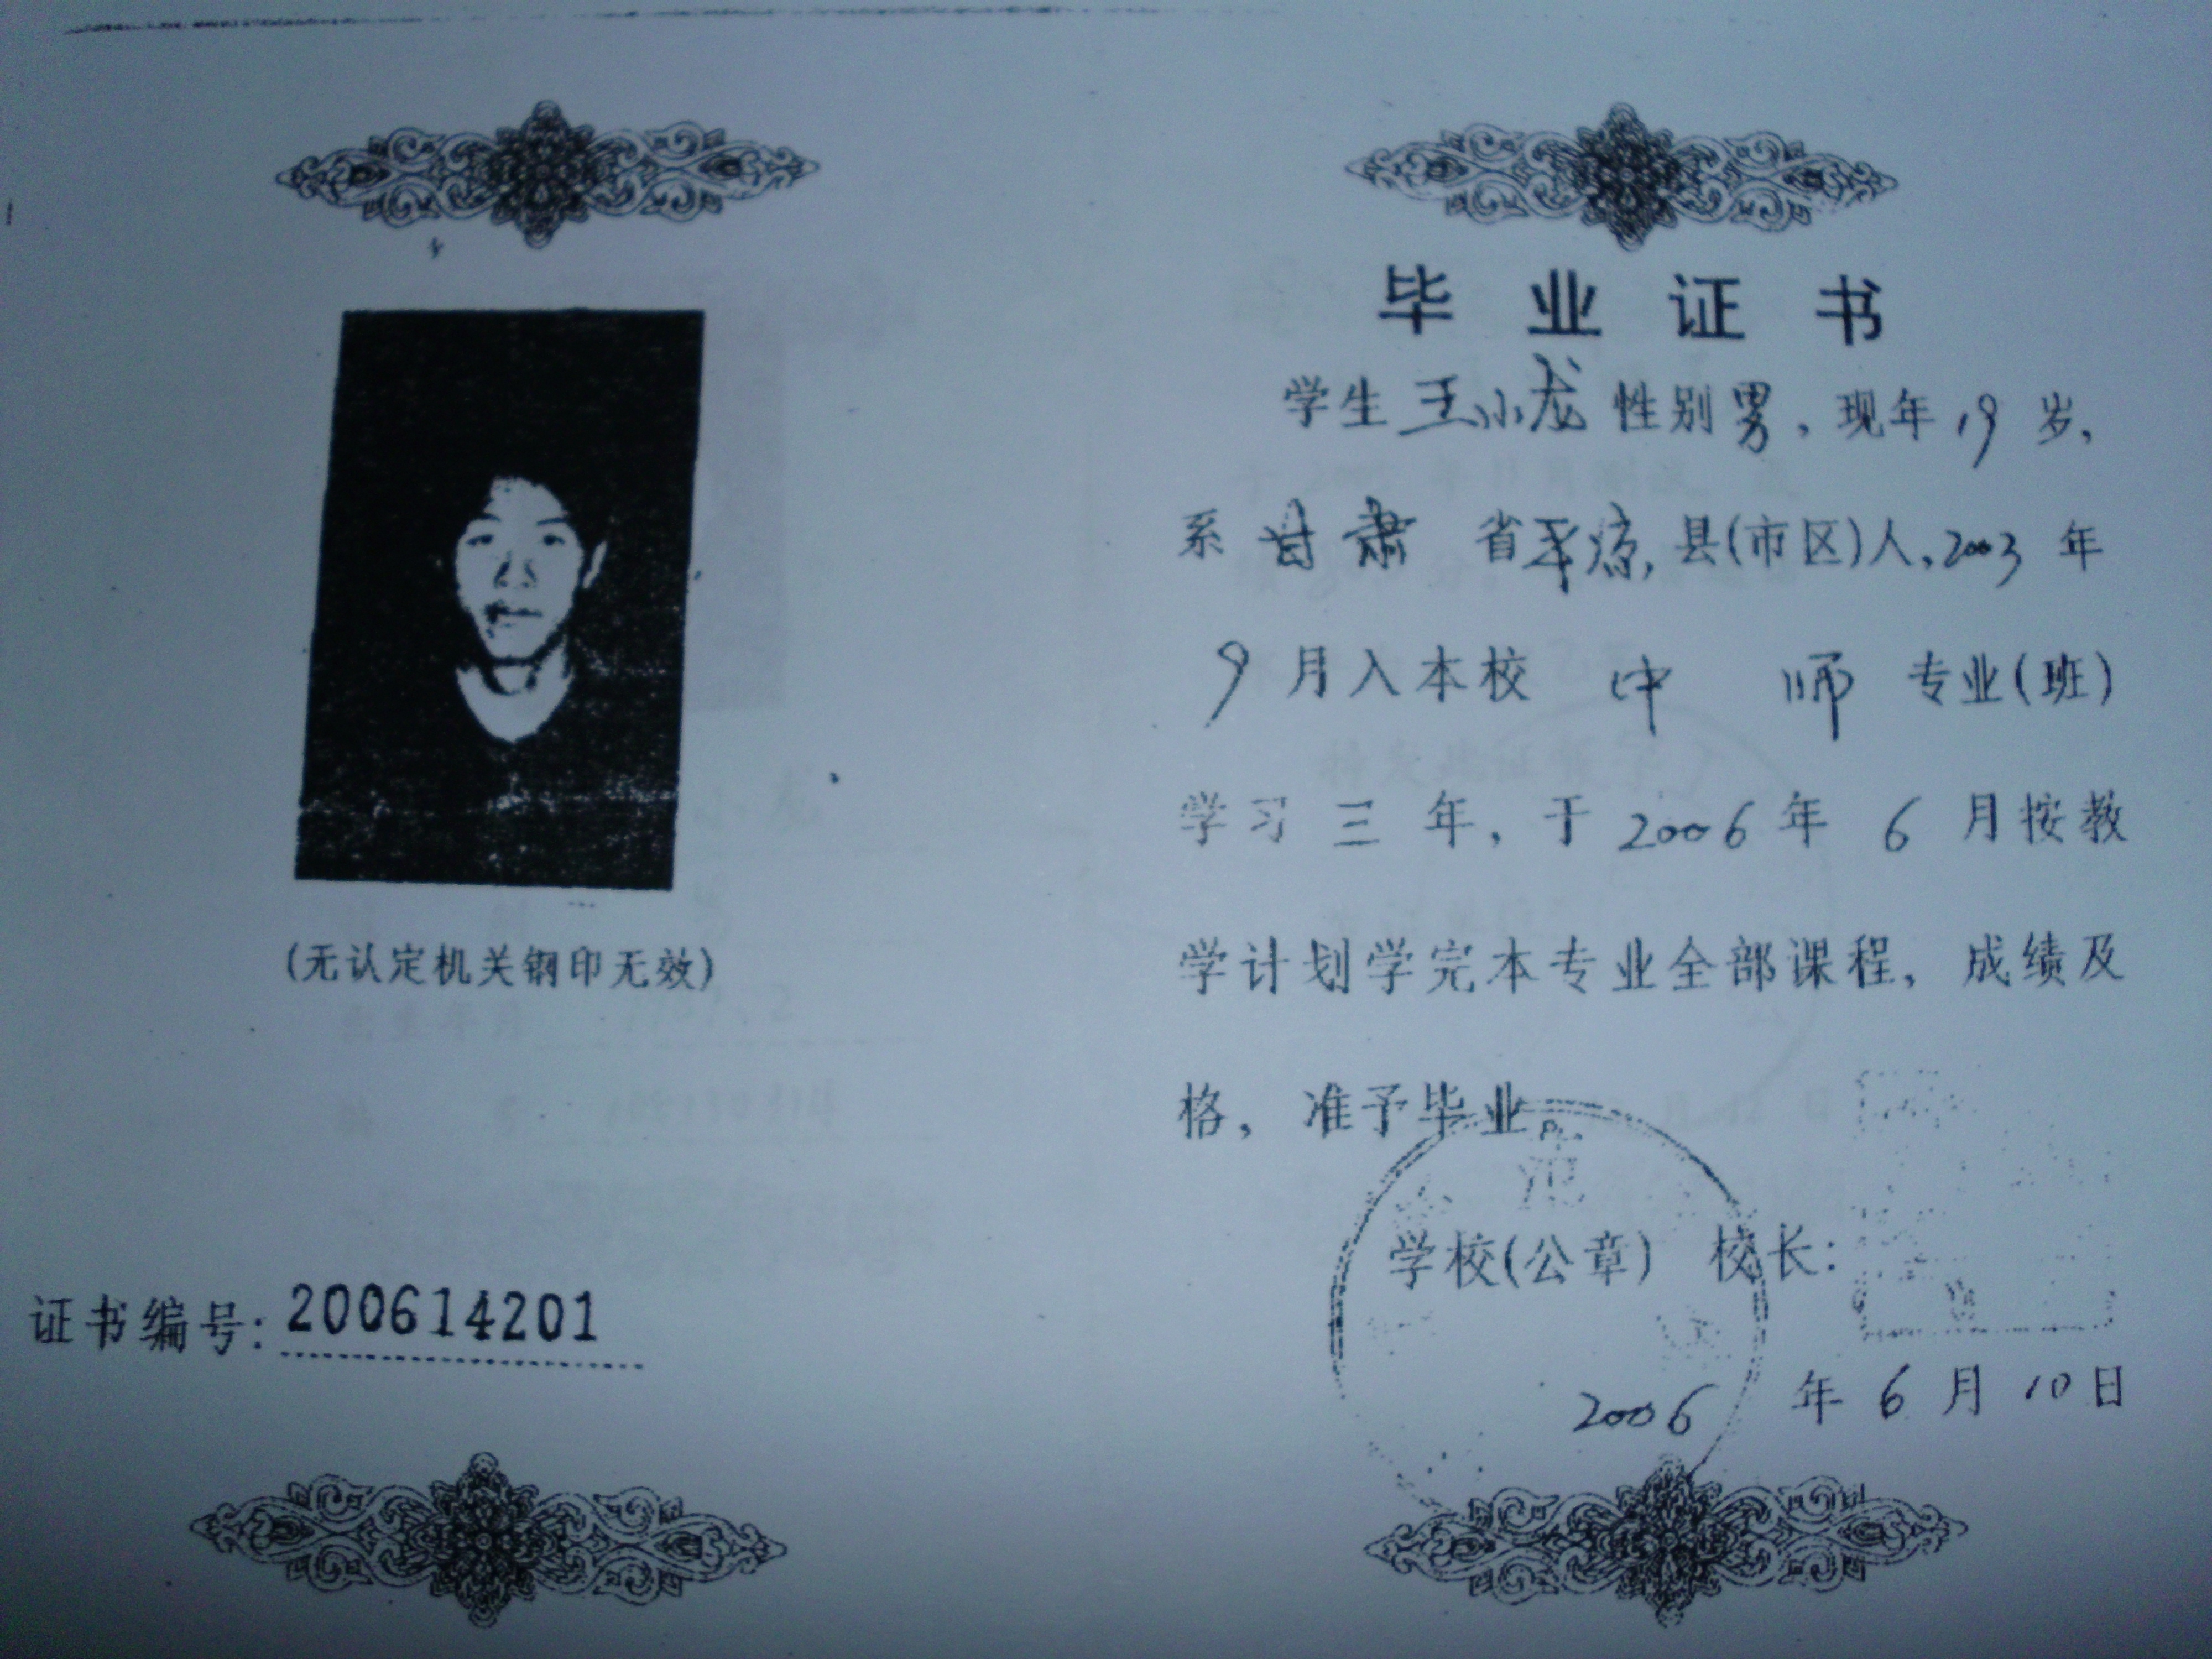 (无认定机关钢印无效)
证书编号:200614201
毕业证书
学生王小龙性别男,现年19岁,
系甘肃省平凉,县(市区)人,2003年
9月入本校中师专业(班)
学习三年,于2006年6月按教
学计划学完本专业全部课程,成绩及
格,准予毕业
学校(公章) 校长:
2006年6月10日